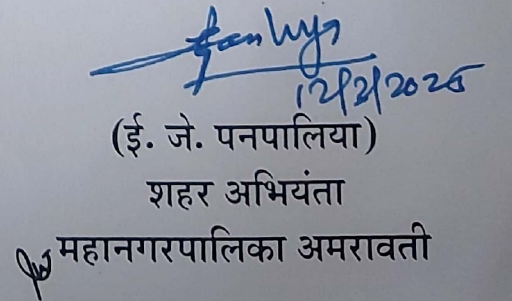 12/2/2025
(ई. जे. पनपालिया)
शहर अभियंता
महानगरपालिका अमरावती